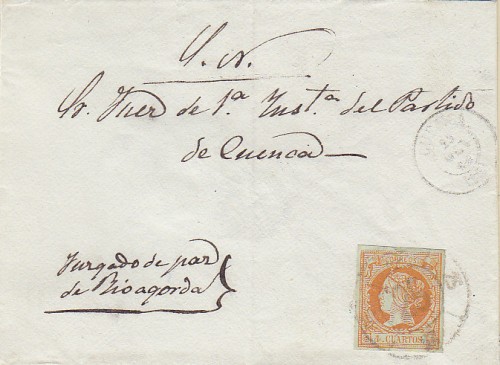 S. N.
Sr. Juez de 1.ª Inst.ª del Partido
de Cuenca
Juzgado de paz
de Rioagorda
CUARTOS